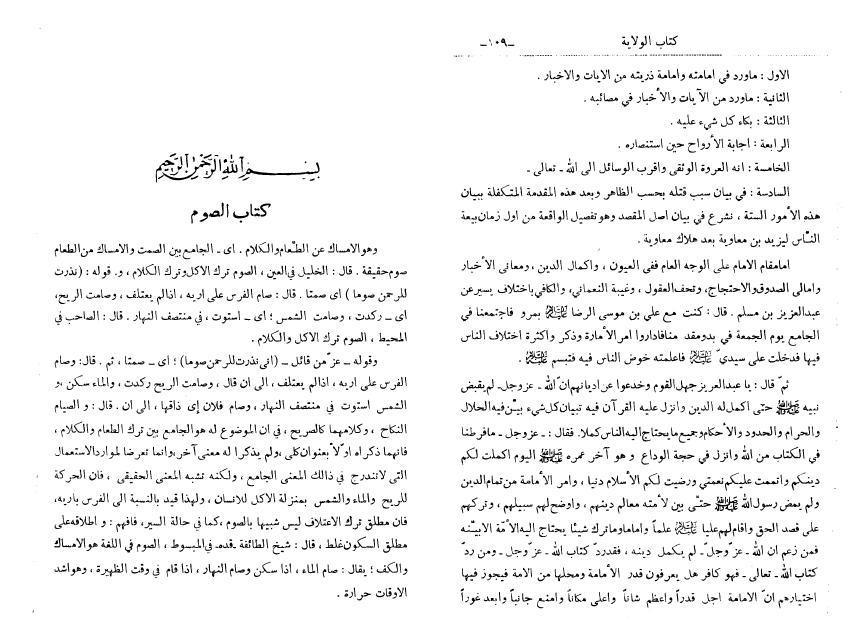 كتاب الولاية
ـ١٠٩ـ
الاول : ماورد في امامته وامامة ذريته من الايات والاخبار .
الثانية : ماورد من الآيات والأخبار في مصائبه .
الثالثة : بكاء كل شيء عليه .
الرابعة : اجابة الأرواح حين استنصاره .
الخامسة : انه العروة الوثقى واقرب الوسائل الى الله ـ تعالى ـ
السادسة : في بيان سبب قتله بحسب الظاهر وبعد هذه المقدمة المتكفلة ببيان
هذه الأمور الستة ، نشرع في بيان اصل المقصد وهو تفصيل الواقعة من اول زمان بيعة
النّاس ليزيد بن معاوية بعد هلاك معاوية .
امامقام الامام على الوجه العام ففى العيون ، واكمال الدين ، ومعانى الأخبار
وامالى الصدوق والاحتجاج ، وتحف العقول ، وغيبة النعماني، والكافي باختلاف يسير عن
عبدالعزيز بن مسلم . قال : كنت مع علي بن موسى الرضا عليه السلام بمرو فاجتمعنا في
الجامع يوم الجمعة في بدو مقدمنا فاداروا امر الأمارة وذكر واكثرة اختلاف الناس
فيها فدخلت على سيدي عليه السلام فاعلمته خوض الناس فيه فتبسم عليه السلام .
ثمّ قال : يا عبدالعزيز جهل القوم وخدعوا عن اديانهم انّ الله ـ عزوجل ـ لم يقبض
نبيه حتى اكمل له الدين وانزل عليه القرآن فيه تبيان كل شيء بيّن فيه الحلال
والحرام والحدود والأحكام وجميع ما يحتاج اليه الناس كملا . فقال : ـ عزوجل ـ مافرطنا
في الكتاب من الله وانزل في حجة الوداع وهو آخر عمره اليوم اكملت لكم
دينكم واتممت عليكم نعمتي ورضيت لكم الأسلام دنيا ، وامر الأمامة من تمام الدين
ولم يمض رسول الله حتّى بين لأمته معالم دينهم ، واوضح لهم سبيلهم ، وتركهم
على قصد الحق واقام لهم عليا عليه السلام علماً واماما وماترك شيئا يحتاج اليه الأمّة الابيّنه
فمن زعم ان الله ـ عزّوجلّ ـ لم يكمل دينه ، فقدردّ كتاب الله ـ عزّوجل ـ ومن ردّ
كتاب الله ـ تعالى ـ فهو كافر هل يعرفون قدر الأمامة ومحلها من الامة فيجوز فيها
اختيارهم انّ الامامة اجل قدراً واعظم شاناً واعلى مكاناً وامنع جانباً وابعد غوراً
بسم الله الرحمن الرحيم
كتاب الصوم
وهو الامساك عن الطّعام والكلام . اى ـ الجامع بين الصمت والامساك من الطعام
صوم حقيقة . قال : الخليل في العين ، الصوم ترك الاكل وترك الكلام ، و. قوله : (نذرت
للرحمن صوما ) اى صمتا . قال : صام الفرس على اريه ، اذالم يعتلف ، وصامت الريح،
اى ـ ركدت ، وصامت الشمس ؛ اى ـ استوت ، في منتصف النهار . قال : الصاحب في
المحيط ، الصوم ترك الاكل والكلام .
وقوله ـ عزّ من قائل ـ (انى نذرت للرحمن صوما) ؛ اى ـ صمتا ، ثم . قال: وصام
الفرس على اريه ، اذالم يعتلف ، الى ان قال ، وصامت الريح ركدت ، والماء سكن ، و
الشمس استوت في منتصف النهار ، وصام فلان إى ذاقها ، الى ان . قال : و الصيام
النكاح ، وكلامهما كالصريح ، في ان الموضوع له هو الجامع بين ترك الطعام والكلام ،
فانهما ذكراه اوّلا بعنوان كلى ،ولم يذكرا له معنى آخر ،وانما تعرضا لموارد الاستعمال
التى لاتندرج في ذالك المعنى الجامع ، ولكنه تشبه المعنى الحقيقى ، فان الحركة
للريح والماء والشمس بمنزلة الاكل للانسان ، ولهذا قيد بالنسبة الى الفرس باريه،
فان مطلق ترك الاعتلاف ليس شبيها بالصوم ،كما في حالة السير، فافهم : و اطلاقه على
مطلق السكون غلط ، قال : شيخ الطائفة ـ قده ـ في المبسوط ، الصوم في اللغة هو الامساك
والكف ؛ يقال : صام الماء ، اذا سكن وصام النهار ، اذا قام في وقت الظهيرة ، وهو اشد
الاوقات حرارة .